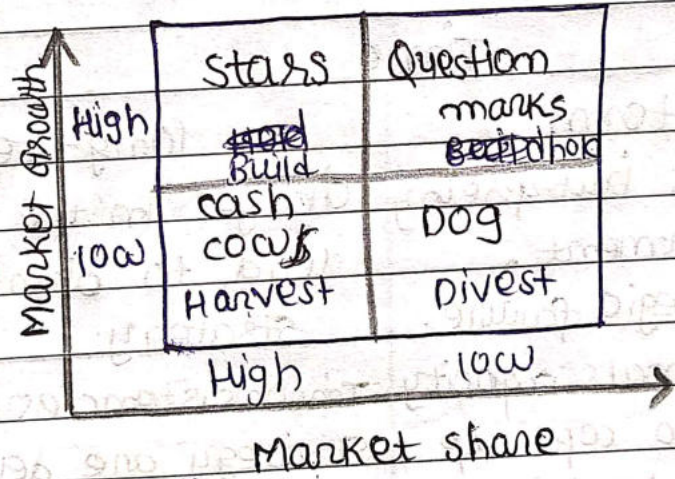 Market Growth
High
low
Stars
Build
Question
marks
hold
cash
cows
Harvest
Dog
Divest
High
low
Market share